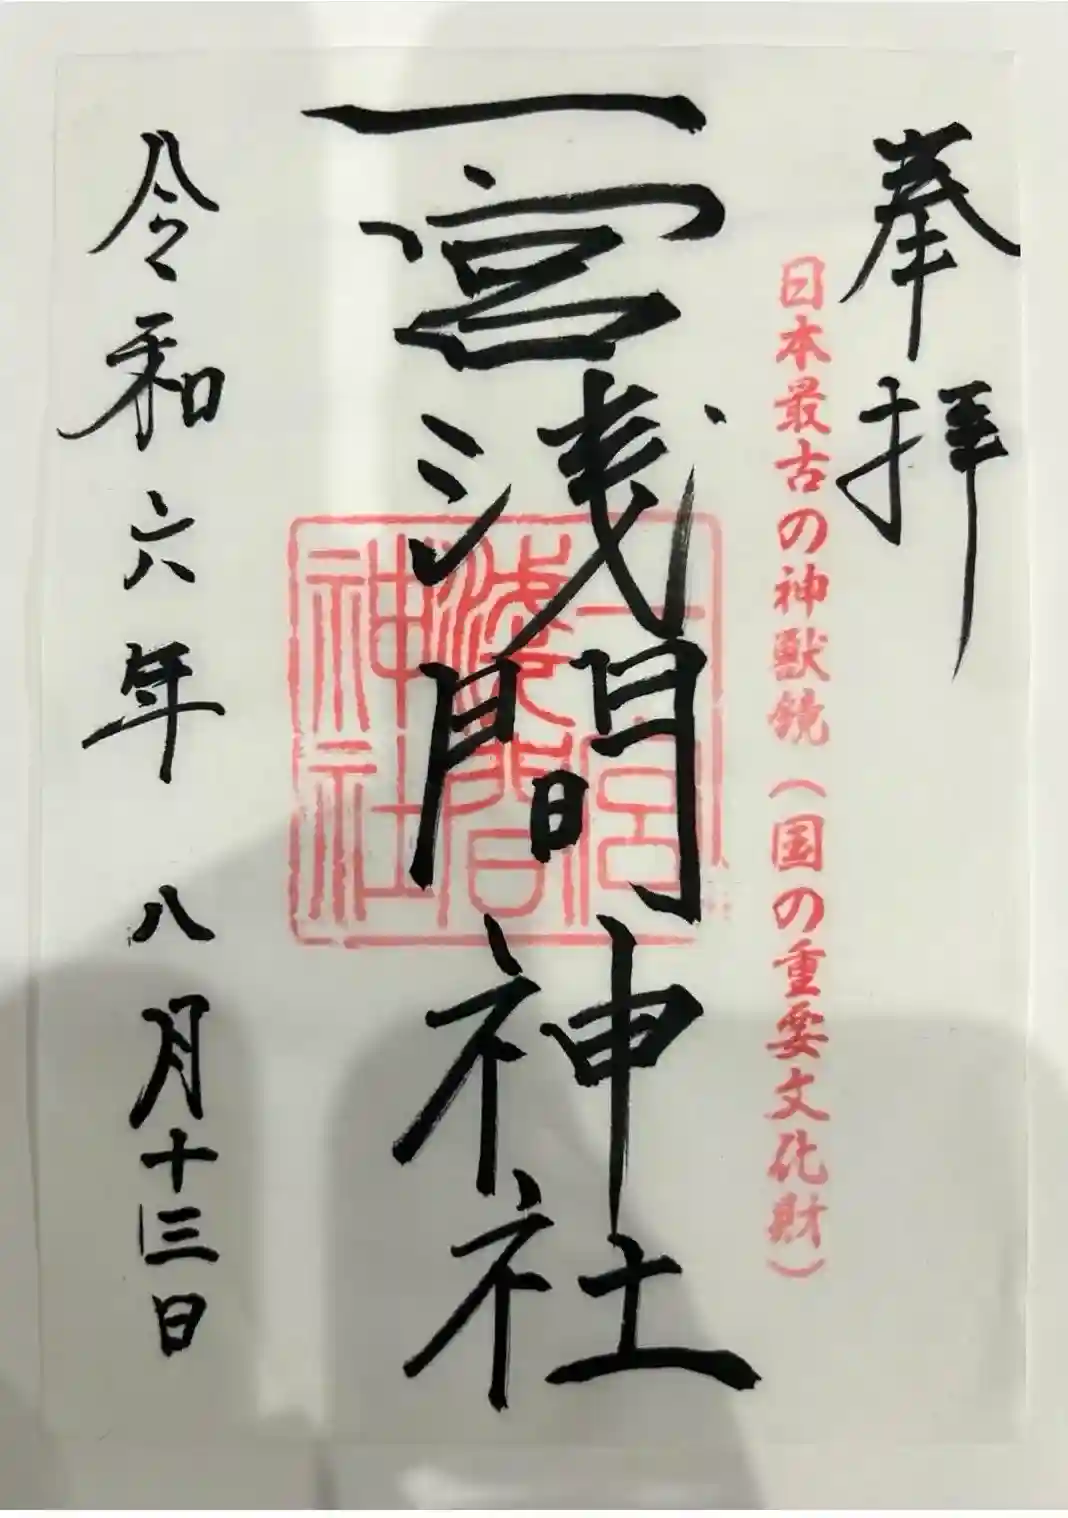 奉拝
日本最古の神獣鏡（国の重要文化財）
一宮浅間神社
一宮
浅間
神社
令和六年 八月十三日